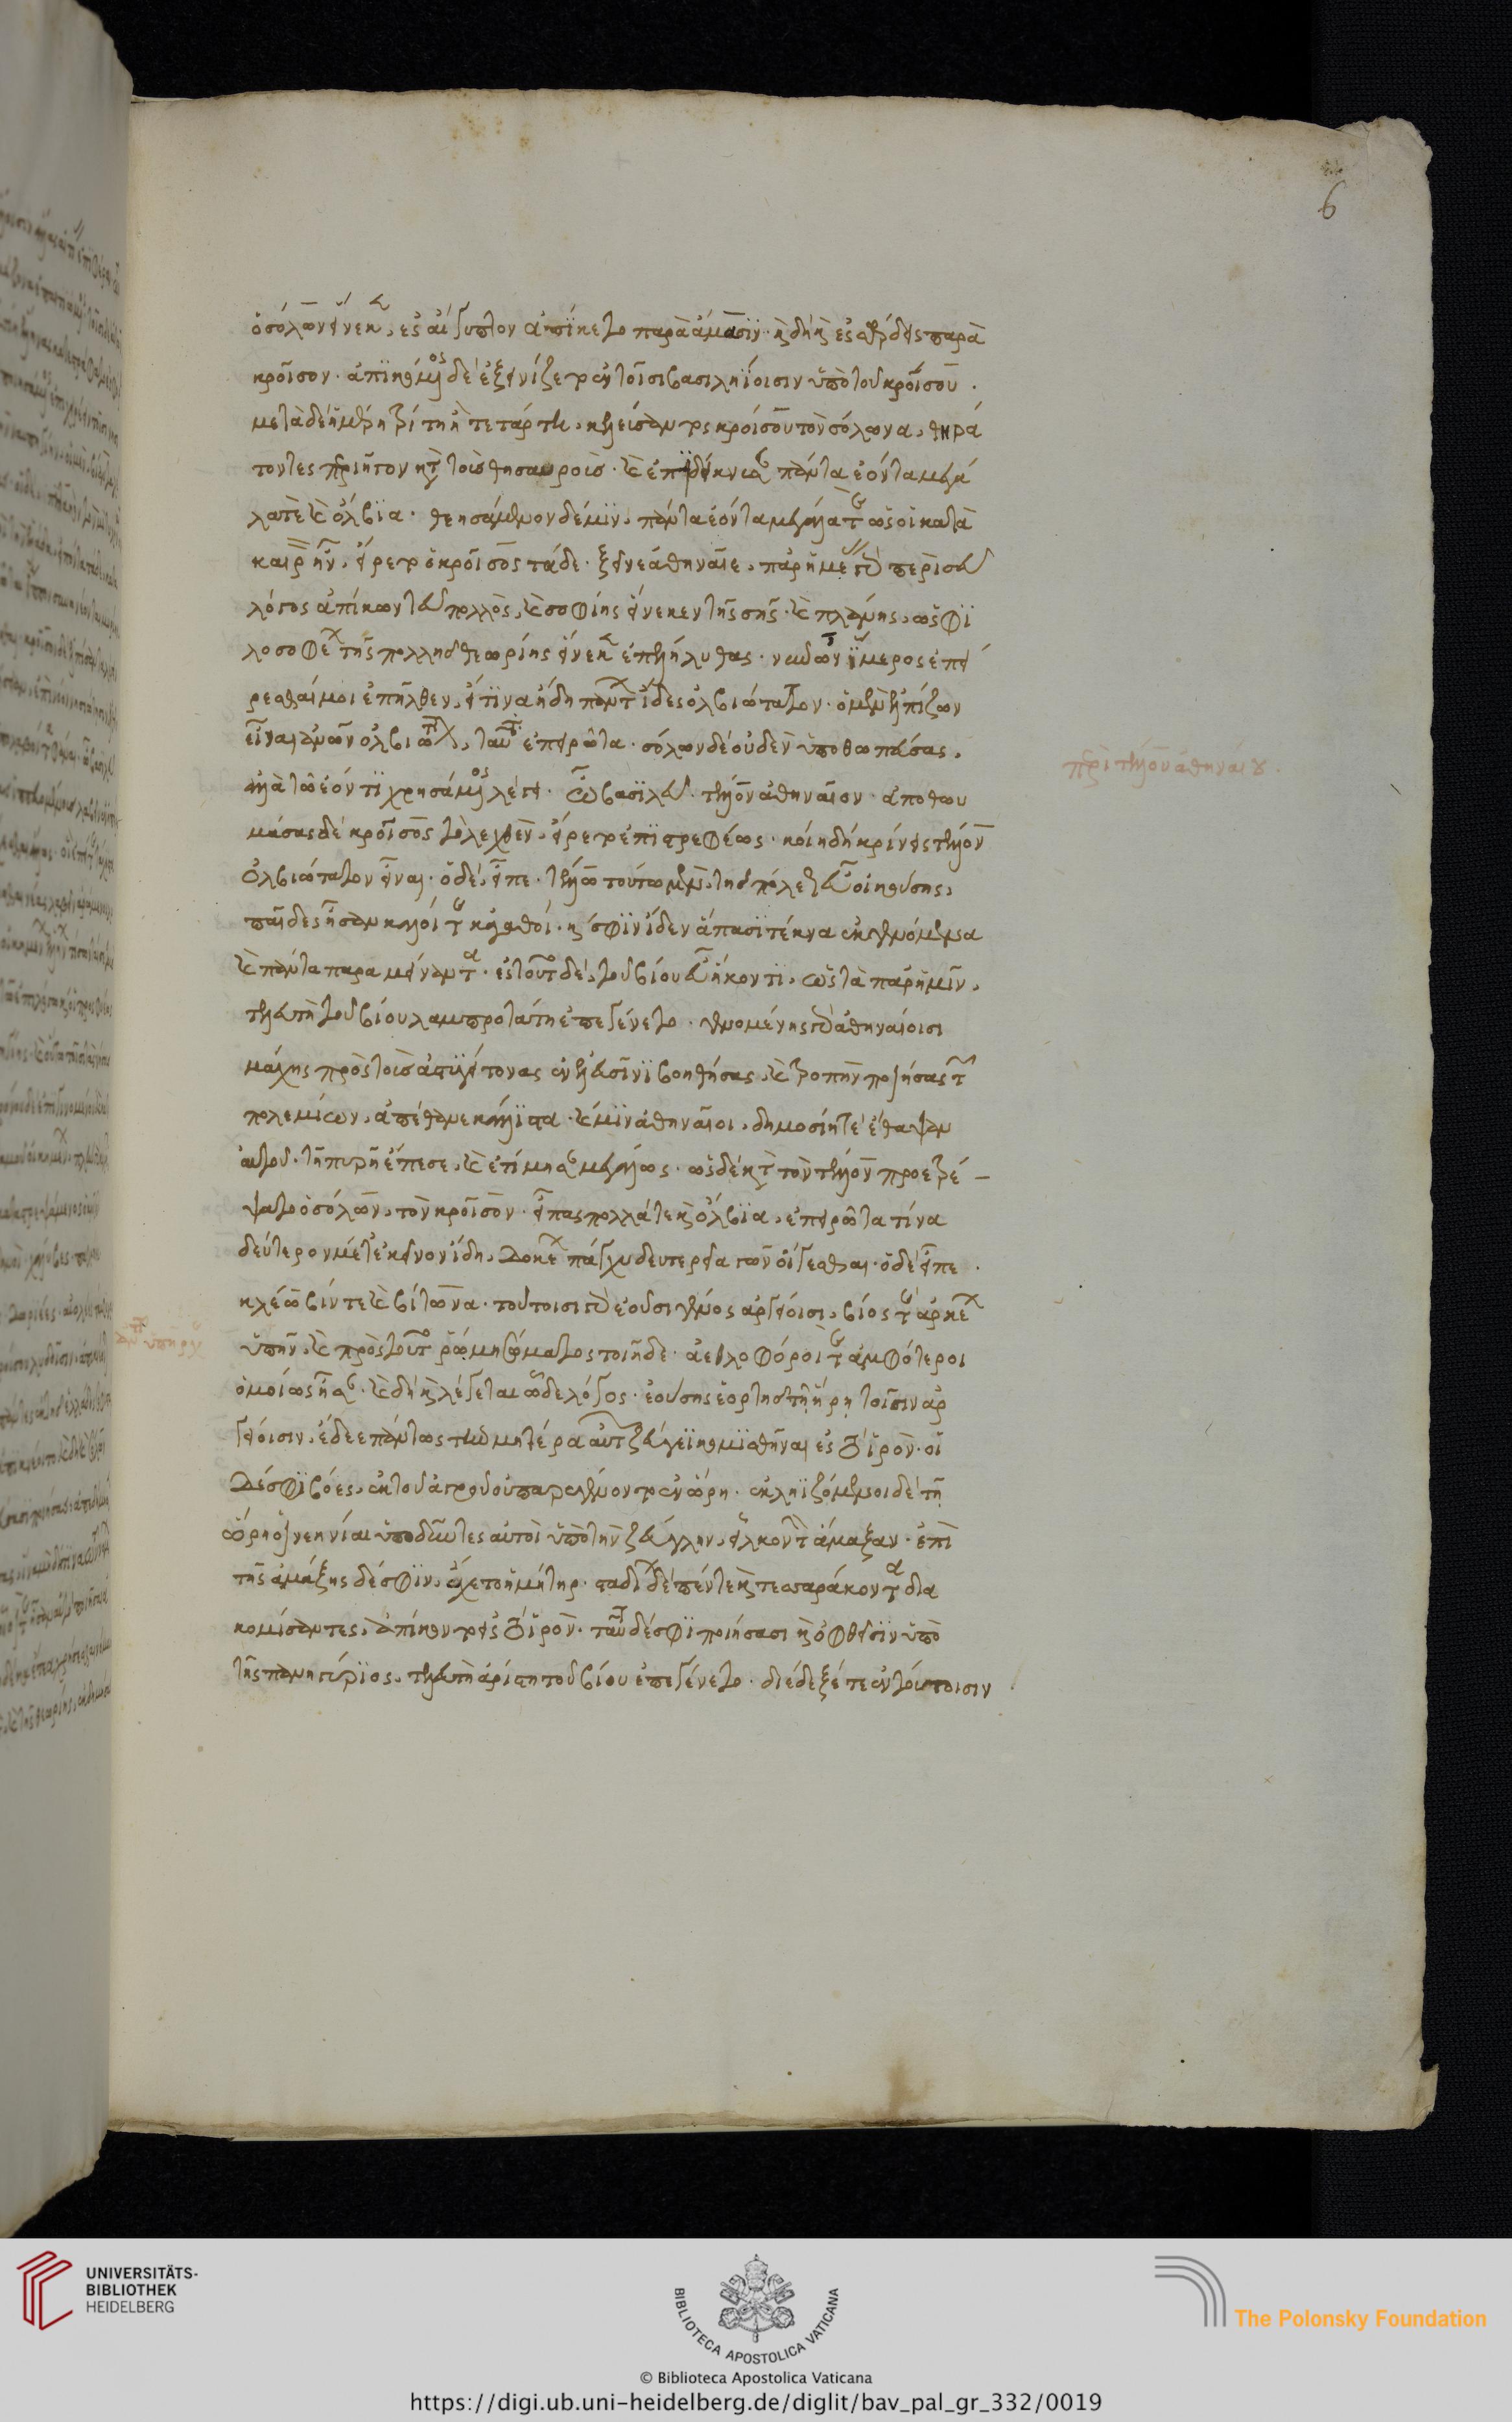 ὁ σόλων εἵνεκεν, ἐς αἴγυπτον ἀπίκετο παρὰ ἄμασιν· καὶ δὴ καὶ ἐς σάρδεις παρὰ
κροῖσον· ἀπικόμενος δὲ ἐξεινίζετο ἐν τοῖσι βασιληΐοισιν ὑπὸ τοῦ κροίσου·
μετὰ δὲ ἡμέρη τρίτη ἢ τετάρτη, κελεύσαντος κροίσου τὸν σόλωνα, θερά
ποντες περιῆγον κατὰ τοὺς θησαυρούς· καὶ ἐπεδείκνυσαν πάντα ἐόντα μεγά
λα τε καὶ ὄλβια· θεησάμενον δέ μιν, πάντα ἐόντα μεγάλα τε ὥς οἱ κατὰ
καιρὸν ἦν, εἴρετο ὁ κροῖσος τάδε· ξεῖνε ἀθηναῖε, παρ' ἡμέας γὰρ περὶ σέο
λόγος ἀπίκωνται πολλὸς, καὶ σοφίης εἵνεκεν τῆς σῆς καὶ πλάνης, ὡς φι
λοσοφέων τῆς πολλῆς θεωρίης εἵνεκεν ἐπελήλυθας· νῦν ὦν ἵμερος ἐπεί
ρεσθαί μοι ἐπῆλθεν, εἴ τινα ἤδη πάντων εἶδες ὀλβιώτατον· ὁ μὲν ἐλπίζων
εἶναι ἀνθρώπων ὀλβιώτατος, ταῦτα ἐπειρώτα· σόλων δὲ οὐδὲν ὑποθωπεύσας,
ἀλλὰ τῷ ἐόντι χρησάμενος λέγει· ὦ βασιλεῦ· τέλλον ἀθηναῖον· ἀποθωυ
μάσας δὲ κροῖσος τὸ λεχθὲν, εἴρετο ἐπιστρεφέως· κοίη δὴ κρίνεις τέλλον
ὀλβιώτατον εἶναι· ὁ δὲ εἶπε· τέλλῳ τοῦτο μὲν, τῆς πόλεως εὖ ἡκούσης,
παῖδες ἦσαν καλοί τε κἀγαθοί· καί σφιν εἶδεν ἅπασι τέκνα ἐκγενόμενα
καὶ πάντα παραμείναντα· ἐς τοῦτο δὲ, τοῦ βίου εὖ ἥκοντι, ὡς τὰ παρ' ἡμῖν,
τελευτὴ τοῦ βίου λαμπροτάτη ἐπεγένετο· γενομένης γὰρ ἀθηναίοισι
μάχης πρὸς τοὺς ἀστυγείτονας ἐν ἐλευσῖνι βοηθήσας, καὶ τροπὴν ποιήσας τῶν
πολεμίων, ἀπέθανε κάλλιστα· καί μιν ἀθηναῖοι, δημοσίη τε ἔθαψαν
αὐτοῦ· τῆπερ ἔπεσε, καὶ ἐτίμησαν μεγάλως· ὡς δὲ κατὰ τὸν τέλλον προετρέ-
ψατο ὁ σόλων, τὸν κροῖσον· εἴπας πολλά τε καὶ ὄλβια, ἐπειρώτα τίνα
δεύτερον μετ' ἐκεῖνον ἴδη, δοκέων πάγχυ δευτερεῖα γῶν οἴσεσθαι· ὁ δὲ εἶπε·
κλέοβίν τε καὶ βίτωνα· τούτοισι γὰρ ἐοῦσι γένος ἀργείοισι, βίος τε ἀρκέων
ὑπῆν, καὶ πρὸς τούτῳ ῥώμη σώματος τοιῆδε· ἀεθλοφόροι τε ἀμφότεροι
ὁμοίως ἦσαν· καὶ δὴ καὶ λέγεται ὅδε λόγος· ἐούσης ἑορτῆς τῆ ἥρη τοῖσιν ἀρ
γείοισιν, ἔδεε πάντως τὴν μητέρα αὐτῶν ζεύγεϊ κομισθῆναι ἐς τὸ ἱρόν· οἱ
δέ σφι βόες, ἐκ τοῦ ἀγροῦ οὐ παρεγένοντο ἐν ὥρη· ἐκκληϊόμενοι δὲ τῆ
ὥρη οἱ νεηνίαι ὑποδύντες αὐτοὶ ὑπὸ τὴν ζεύγλην, εἷλκον τὴν ἅμαξαν· ἐπὶ
τῆς ἁμάξης δέ σφιν, ὠχέετο ἡ μήτηρ· σταδίους δὲ πέντε καὶ τεσσαράκοντα δια
κομίσαντες, ἀπίκοντο ἐς τὸ ἱρόν· ταῦτα δέ σφι ποιήσασι καὶ ὀφθεῖσιν ὑπὸ
τῆς πανηγύριος, τελευτὴ ἀρίστη τοῦ βίου ἐπεγένετο· διέδεξέ τε ἐν τούτοισιν
περὶ τέλλου ἀθηναίου.
6
UNIVERSITÄTS-
BIBLIOTHEK
HEIDELBERG
BIBLIOTECA APOSTOLICA VATICANA
The Polonsky Foundation
© Biblioteca Apostolica Vaticana
https://digi.ub.uni-heidelberg.de/diglit/bav_pal_gr_332/0019